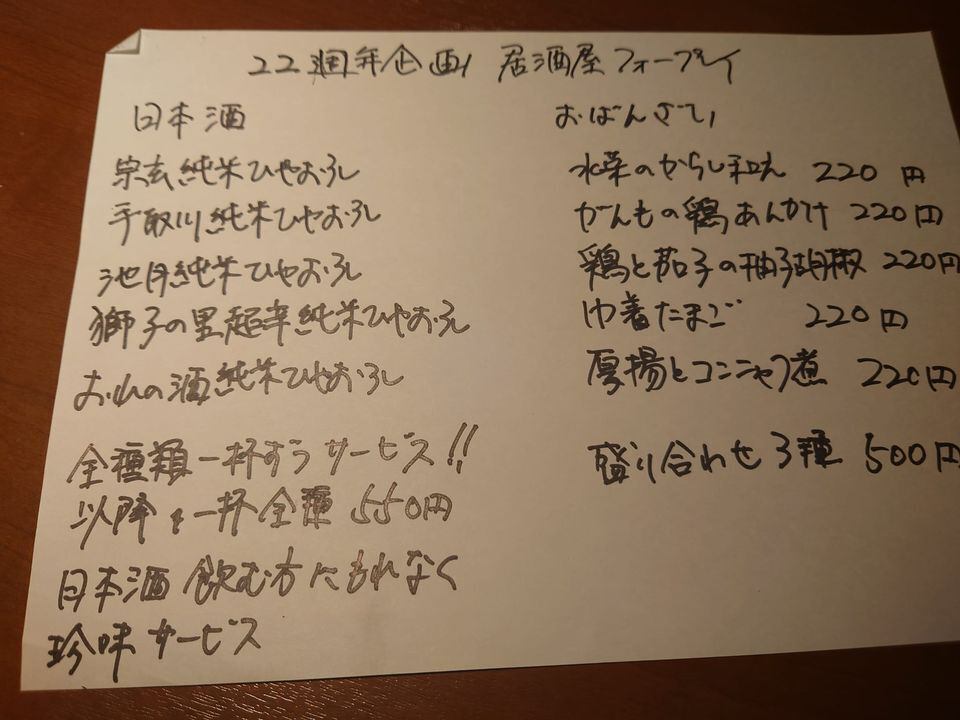 22周年企画 居酒屋 フォープレイ
日本酒
宗玄純米ひやおろし
手取川純米ひやおろし
池月純米ひやおろし
獅子の里超辛純米ひやおろし
お山の酒純米ひやおろし
全種類一杯ずつサービス!!
以降は一杯全種550円
日本酒 飲む方にもれなく
珍味サービス
おばんざい
水菜のからし和え 220円
がんもの鶏あんかけ 220円
鶏と茄子の柚子胡椒 220円
巾着たまご 220円
厚揚とコンニャク煮 220円
盛り合わせ3種 500円